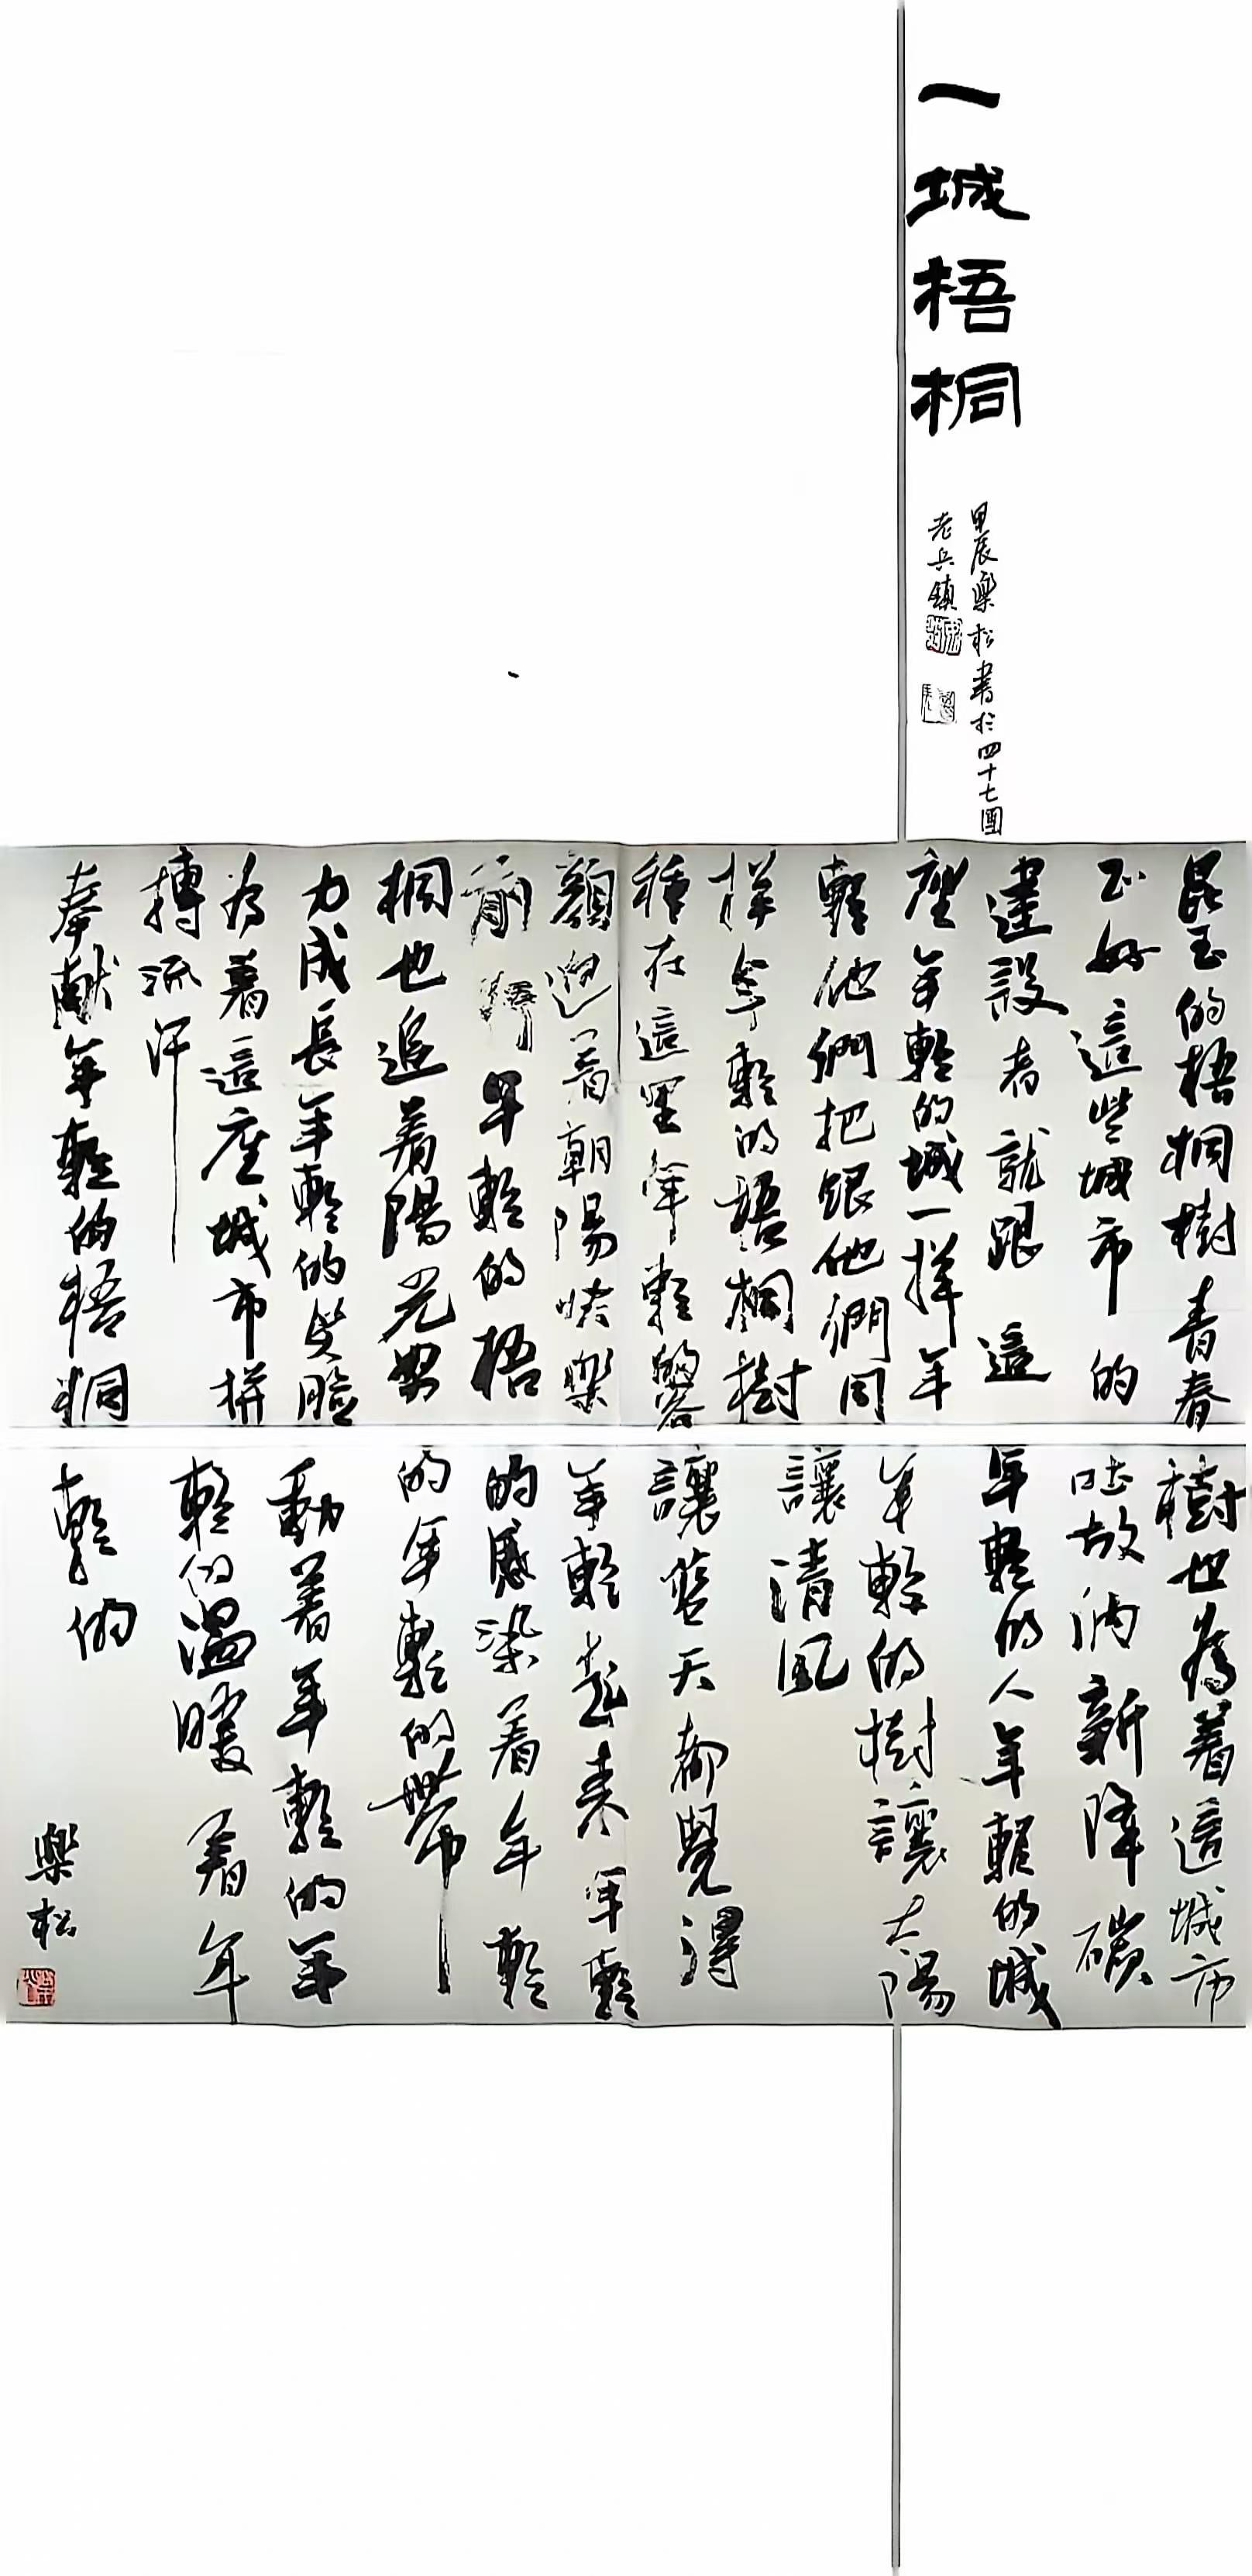 一城梧桐
甲辰樂松書於四十七團
老兵鎮
昆玉的梧桐樹青春
正好這些城市的
建設者就跟這
座年輕的城一樣年
輕他們把跟他們同
樣年輕的梧桐樹
種在這里年輕的容
顏迎着朝陽快樂
年輕的梧
桐也追着陽光努
力成長年輕的笑臉
為着這座城市拼
搏流汗
奉献年輕的梧桐
樹也為着這城市
吐故納新降碳
年輕的人年輕的城
年輕的樹讓太陽
讓清風
讓藍天都覺得
年輕起来年輕
的感染着年輕
的年輕的帶
動着年輕的年
輕的温暖着年
輕的
樂松